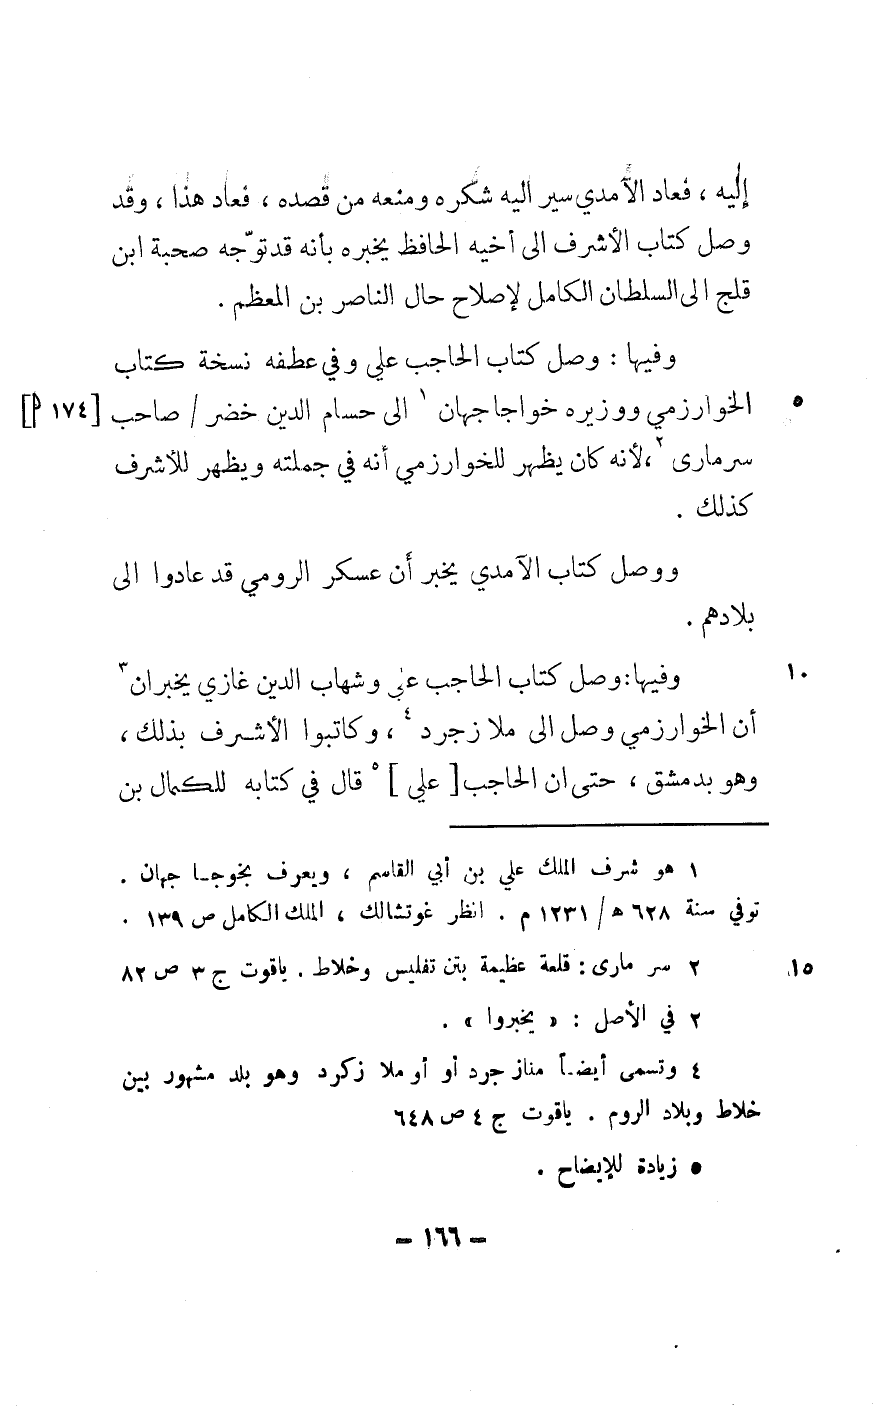 إليه ، فعاد الآمدي سير اليه شكره ومنعه من قصده ، فعاد هذا ، وقد
وصل كتاب الأشرف الى أخيه الحافظ يخبره بأنه قد توّجه صحبة ابن
قلج الى السلطان الكامل لإصلاح حال الناصر بن المعظم .
وفيها : وصل كتاب الحاجب علي وفي عطفه نسخة كتاب
٥ الخوارزمي ووزيره خواجا جهان ١ الى حسام الدين خضر / صاحب [ ١٧٤ أ]
سرمارى ٢ ،لأنه كان يظهر للخوارزمي أنه في جملته ويظهر للأشرف
كذلك .
ووصل كتاب الآمدي يخبر أن عسكر الرومي قد عادوا الى
بلادهم .
١٠ وفيها : وصل كتاب الحاجب علي وشهاب الدين غازي يخبران ٣
أن الخوارزمي وصل الى ملازجرد ٤ ، وكاتبوا الأشرف بذلك ،
وهو بدمشق ، حتى ان الحاجب [ علي ] ٥ قال في كتابه للكمال بن
١ هو شرف الملك علي بن أبي القاسم ، ويعرف بخوجا جهان .
توفي سنة ٦٢٨ ه / ١٢٣١ م . انظر غوتشالك ، الملك الكامل ص ١٣٩ .
١٥ ٢ سر مارى : قلعة عظيمة بتن تفليس وخلاط . ياقوت ج ٣ ص ٨٢
٢ في الأصل : « يخبروا » .
٤ وتسمى أيضاً مناز جرد أو أو ملا زكرد وهو بلد مشهور بين
خلاط وبلاد الروم . ياقوت ج ٤ ص ٦٤٨
٥ زيادة للإيضاح .
– ١٦٦ –